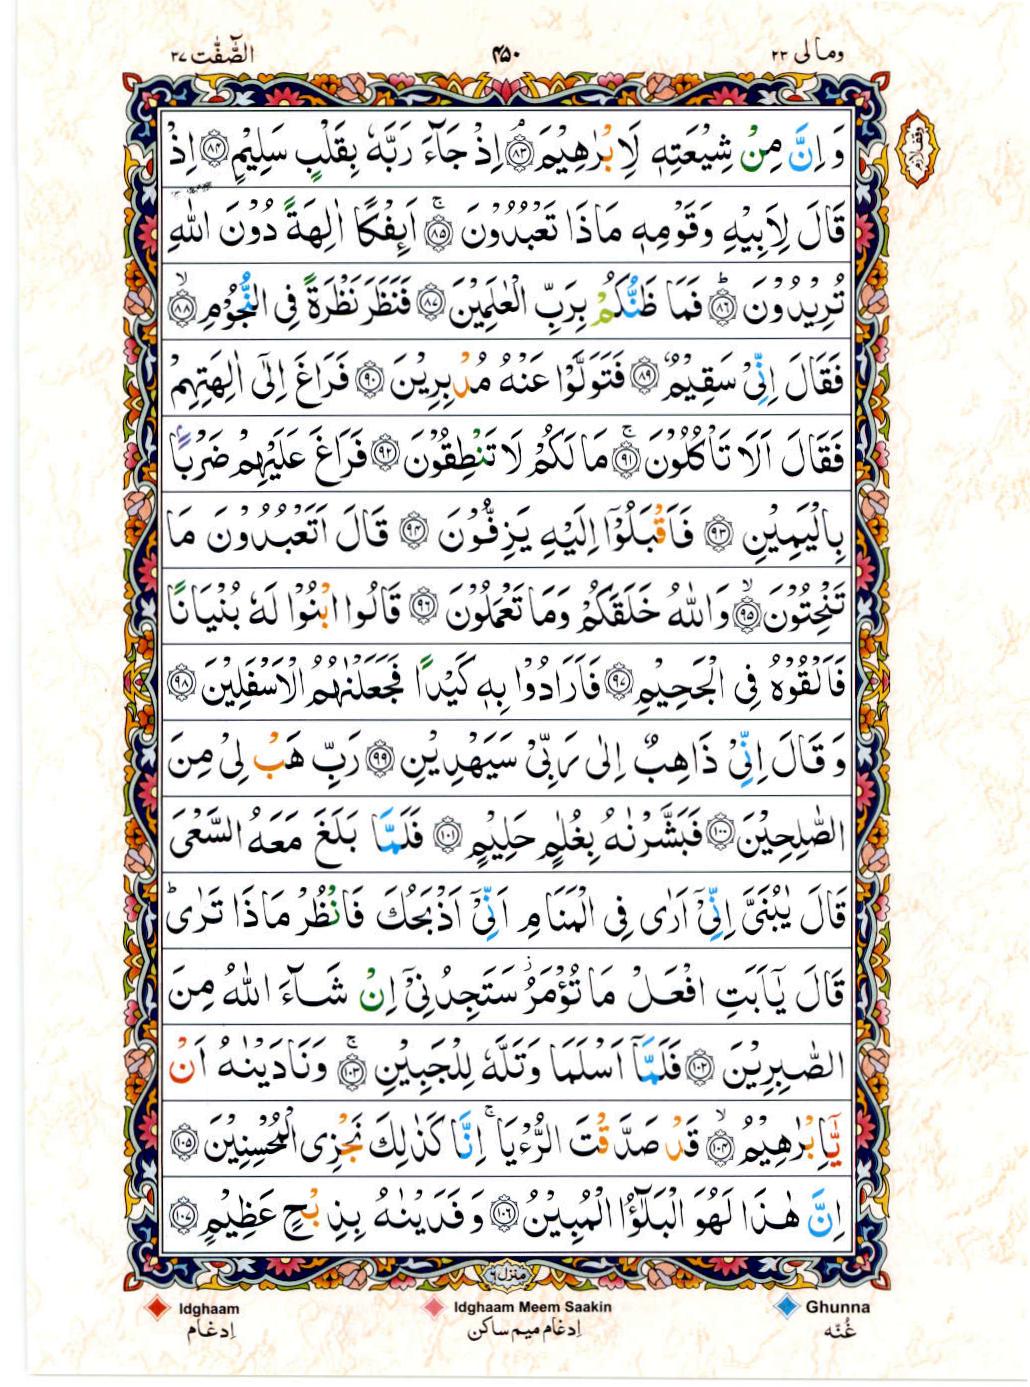 الصّٰٓفّٰت ٣٧
۴۵۰
ومالی ٢٣
وَ اِنَّ مِنْ شِيْعَتِهٖ لَاِبْرٰهِيْمَۘ ﴿٨٣﴾ اِذْ جَآءَ رَبَّهٗ بِقَلْبٍ سَلِيْمٍ ﴿٨٤﴾ اِذْ
قَالَ لِاَبِيْهِ وَقَوْمِهٖ مَاذَا تَعْبُدُوْنَ ۚ﴿٨٥﴾ اَئِفْكًا اٰلِهَةً دُوْنَ اللّٰهِ
تُرِيْدُوْنَ ؕ﴿٨٦﴾ فَمَا ظَنُّكُمْ بِرَبِّ الْعٰلَمِيْنَ ﴿٨٧﴾ فَنَظَرَ نَظْرَةً فِی النُّجُوْمِ ۙ﴿٨٨﴾
فَقَالَ اِنِّیْ سَقِيْمٌ ﴿٨٩﴾ فَتَوَلَّوْا عَنْهُ مُدْبِرِيْنَ ﴿٩٠﴾ فَرَاغَ اِلٰۤی اٰلِهَتِهِمْ
فَقَالَ اَلَا تَاْكُلُوْنَ ۚ﴿٩١﴾ مَا لَكُمْ لَا تَنْطِقُوْنَ ﴿٩٢﴾ فَرَاغَ عَلَيْهِمْ ضَرْبًۢا
بِالْيَمِيْنِ ﴿٩٣﴾ فَاَقْبَلُوْۤا اِلَيْهِ يَزِفُّوْنَ ﴿٩٤﴾ قَالَ اَتَعْبُدُوْنَ مَا
تَنْحِتُوْنَ ۙ﴿٩٥﴾ وَاللّٰهُ خَلَقَكُمْ وَمَا تَعْمَلُوْنَ ﴿٩٦﴾ قَالُوا ابْنُوْا لَهٗ بُنْيَانًا
فَاَلْقُوْهُ فِی الْجَحِيْمِ ﴿٩٧﴾ فَاَرَادُوْا بِهٖ كَيْدًا فَجَعَلْنٰهُمُ الْاَسْفَلِيْنَ ﴿٩٨﴾
وَ قَالَ اِنِّیْ ذَاهِبٌ اِلٰی رَبِّیْ سَيَهْدِيْنِ ﴿٩٩﴾ رَبِّ هَبْ لِیْ مِنَ
الصّٰلِحِيْنَ ﴿١٠٠﴾ فَبَشَّرْنٰهُ بِغُلٰمٍ حَلِيْمٍ ﴿١٠١﴾ فَلَمَّا بَلَغَ مَعَهُ السَّعْیَ
قَالَ يٰبُنَیَّ اِنِّیْۤ اَرٰی فِی الْمَنَامِ اَنِّیْۤ اَذْبَحُكَ فَانْظُرْ مَاذَا تَرٰی ؕ
قَالَ يٰۤاَبَتِ افْعَلْ مَا تُؤْمَرُ ؗ سَتَجِدُنِیْۤ اِنْ شَآءَ اللّٰهُ مِنَ
الصّٰبِرِيْنَ ﴿١٠٢﴾ فَلَمَّاۤ اَسْلَمَا وَتَلَّهٗ لِلْجَبِيْنِ ۚ﴿١٠٣﴾ وَنَادَيْنٰهُ اَنْ
يّٰۤاِبْرٰهِيْمُ ۙ﴿١٠٤﴾ قَدْ صَدَّقْتَ الرُّءْيَا ۚ اِنَّا كَذٰلِكَ نَجْزِی الْمُحْسِنِيْنَ ﴿١٠٥﴾
اِنَّ هٰذَا لَهُوَ الْبَلٰٓؤُا الْمُبِيْنُ ﴿١٠٦﴾ وَ فَدَيْنٰهُ بِذِبْحٍ عَظِيْمٍ ﴿١٠٧﴾
وقف لازم
منزل ٦
Idghaam
Idghaam Meem Saakin
Ghunna
اِدغام
اِدغام میم ساکن
غُنّه